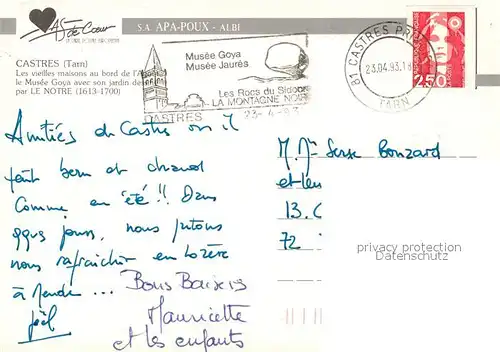 As de Cœur
S.A. APA-POUX - ALBI
CASTRES (Tarn)
Les vieilles maisons au bord de l'Ag
le Musée Goya avec son jardin de
par LE NOTRE (1613-1700)
Musée Goya
Musée Jaurès
Les Rocs du Sidobre
LA MONTAGNE NOIRE
CASTRES
23-4-93
81 CASTRES PR
23.04.93
TARN
2,50
Amitiés de Castres où il
fait beau et chaud
Comme en été !! Dans
qqus jours, nous partons
nous rafraichir en Lozère
à Mende ...
Joël
Bons Baisers
Mauricette
et les enfants
M. Mme Serge Bonzard
et leu
13. C
72
privacy protection
Datenschutz